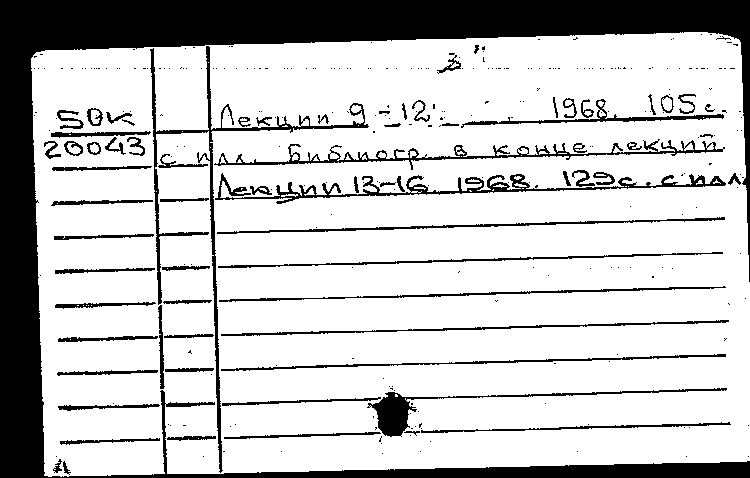 3"
50к Лекции 9-12. 1968. 105 с.
20043 с илл. Библиогр. в конце лекций
Лекции 13-16 1968. 129 с. с илл.